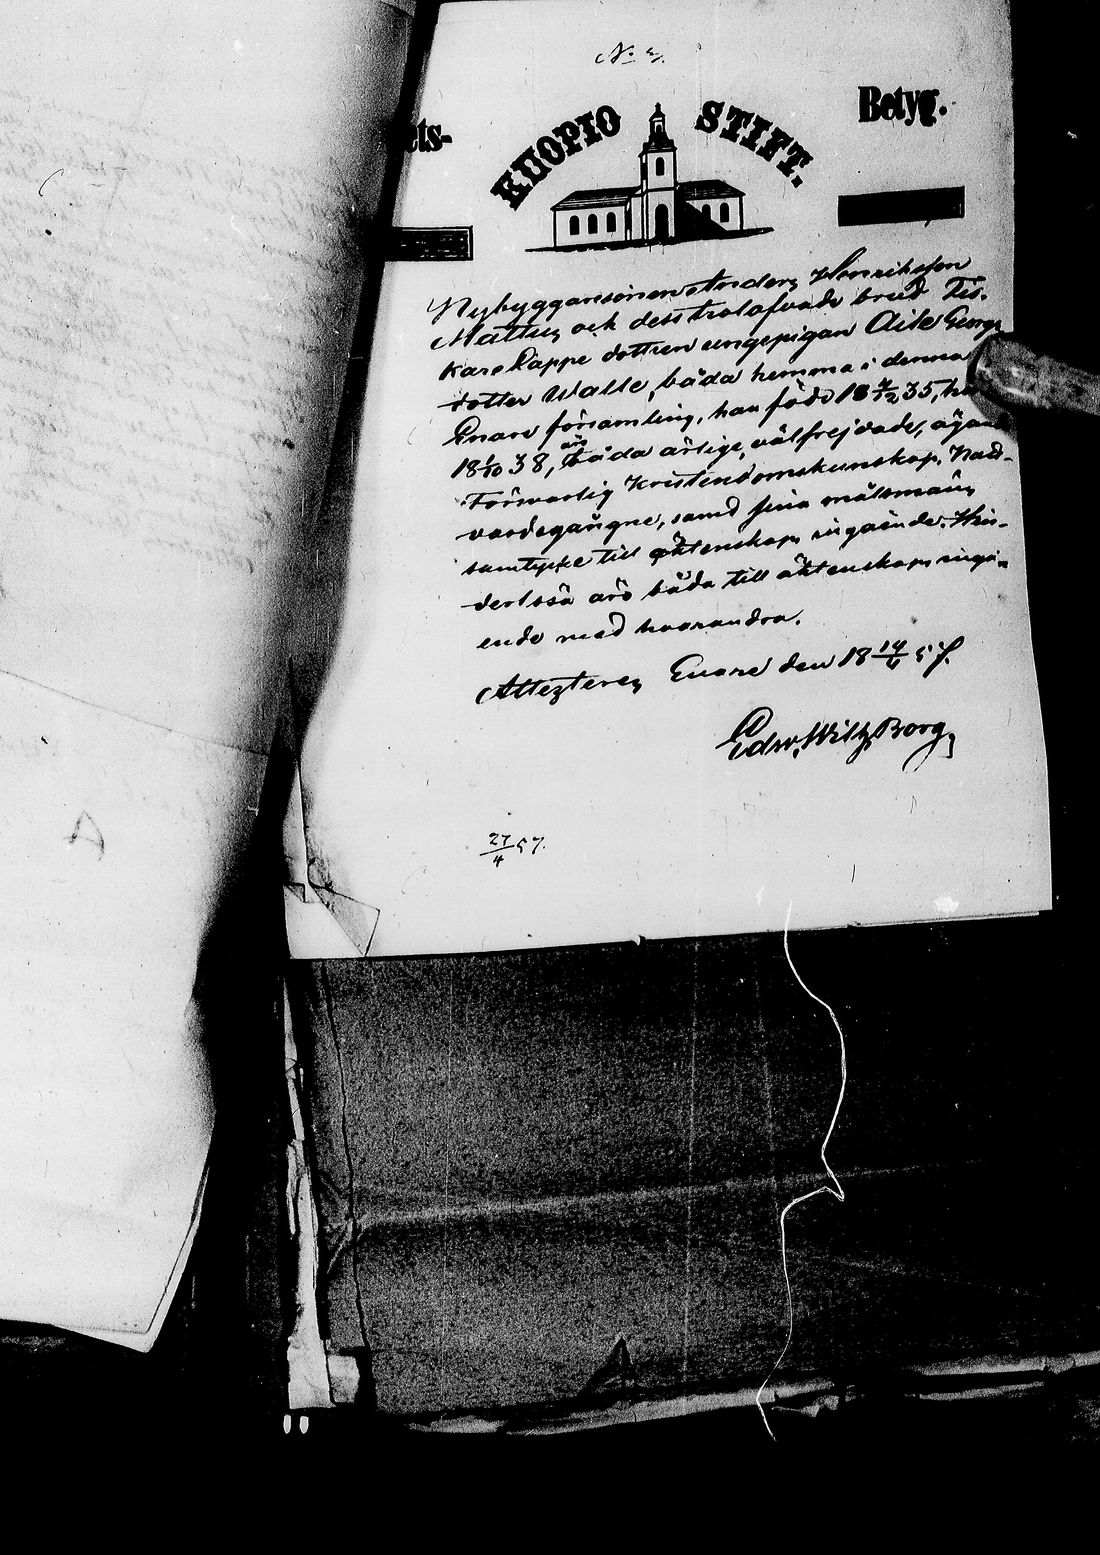 No 5.
ets-
KUOPIO STIFT.
Betyg.
Nybyggaresonen Anders Henriksson
Mattus och dess trolofvade brud Fis-
kare Lappe dottren ungepigan Aile Georgs
dotter Walle, båda hemma i denna
Enare församling, han född 18 4/12 35, hon
18 1/10 38, äro båda ärlige, välfrejdade, ägan
Försvarlig Kristendomskunskap, Natt-
vardsgångne, samt sina målsmäns
samtycke till äktenskaps ingående. Hin-
derlösa äro båda till äktenskaps ingå-
ende med hvarandra.
Attesterer Enare den 18 14/4 57.
Edw. Wilh. Borg,
27/4 57.